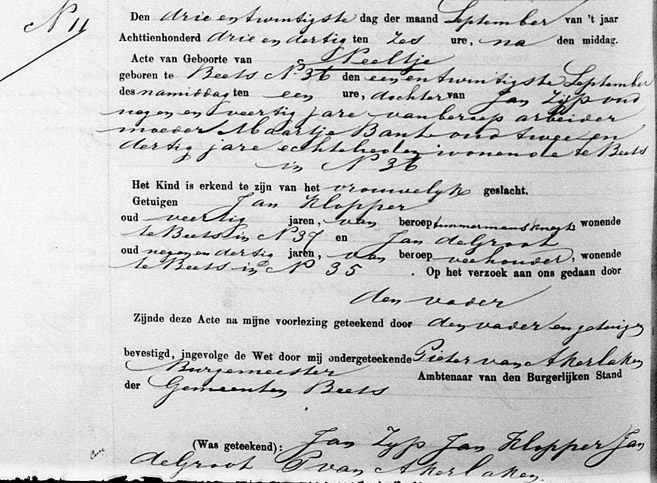 N 11
Den drie en twintigste dag der maand September van 't jaar
Achttienhonderd drie en dertig ten zes ure, na den middag.
Acte van Geboorte van Neeltje
geboren te Beets N 36 den een en twintigste September
des namiddag ten een ure, dochter van Jan Zyp oud
negen en veertig jare van beroep arbeider
moeder Maartje Bank oud twee en
dertig jare echtelieden wonende te Beets
in N 36
Het Kind is erkend te zijn van het vrouwelyk geslacht.
Getuigen Jan Klopper
oud veertig jaren, van beroep timmermansknegt wonende
te Beets in N 37 en Jan de Groot
oud negen en dertig jaren, van beroep veehouder, wonende
te Beets in N 35 . Op het verzoek aan ons gedaan door
den vader
Zijnde deze Acte na mijne voorlezing geteekend door den vader en getuigen
bevestigd, ingevolge de Wet door mij ondergeteekende Pieter van Akerlaken
Burgemeester Ambtenaar van den Burgerlijken Stand
der Gemeenten Beets
(Was geteekend): Jan Zyp Jan Klopper Jan
de Groot P van Akerlaken.